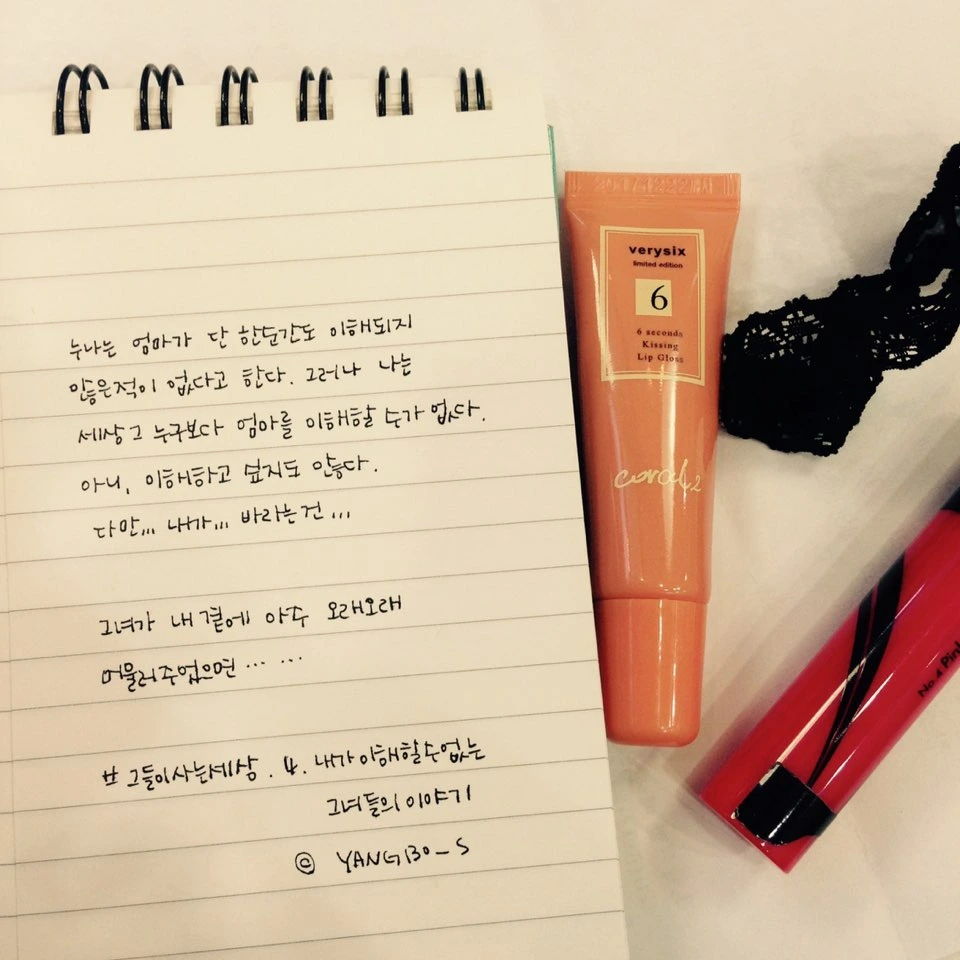 누나는 엄마가 단 한순간도 이해되지
않은적이 없다고 한다. 그러나 나는
세상 그 누구보다 엄마를 이해할 수가 없다.
아니, 이해하고 싶지도 않다.
다만... 내가... 바라는건...
그녀가 내 곁에 아주 오래오래
머물러주었으면... ...
# 그들이사는세상. 4. 내가 이해할수없는
그녀들의 이야기
© YANGBO_S
verysix
limited edition
6
6 seconds
Kissing
Lip Gloss
coral 2
No.4 Pink